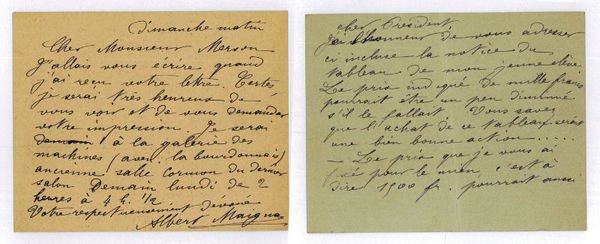 Dimanche matin
Cher Monsieur Merson
J'allais vous écrire quand
j'ai reçu votre lettre. Certes
je serai très heureux de
vous voir et de vous demander
votre impression. Je serai
demain à la galerie des
machines (avec la bourdonnais)
ancienne salle Cormon du dernier
salon Demain lundi de 2
heures à 4 h. 1/2
Votre respectueusement dévoué
Albert Maignan
cher Président
J'ai l'honneur de vous adresser
ci incluse la notice du
tableau de mon jeune élève
Le prix indiqué de mille francs
pourrait être un peu diminué
s'il le fallait. Vous savez
que l'achat de ce tableau serait
une bien bonne action.....
— Le prix que je vous ai
fixé pour le mien, c'est à
dire 1500 fr. pourrait aussi